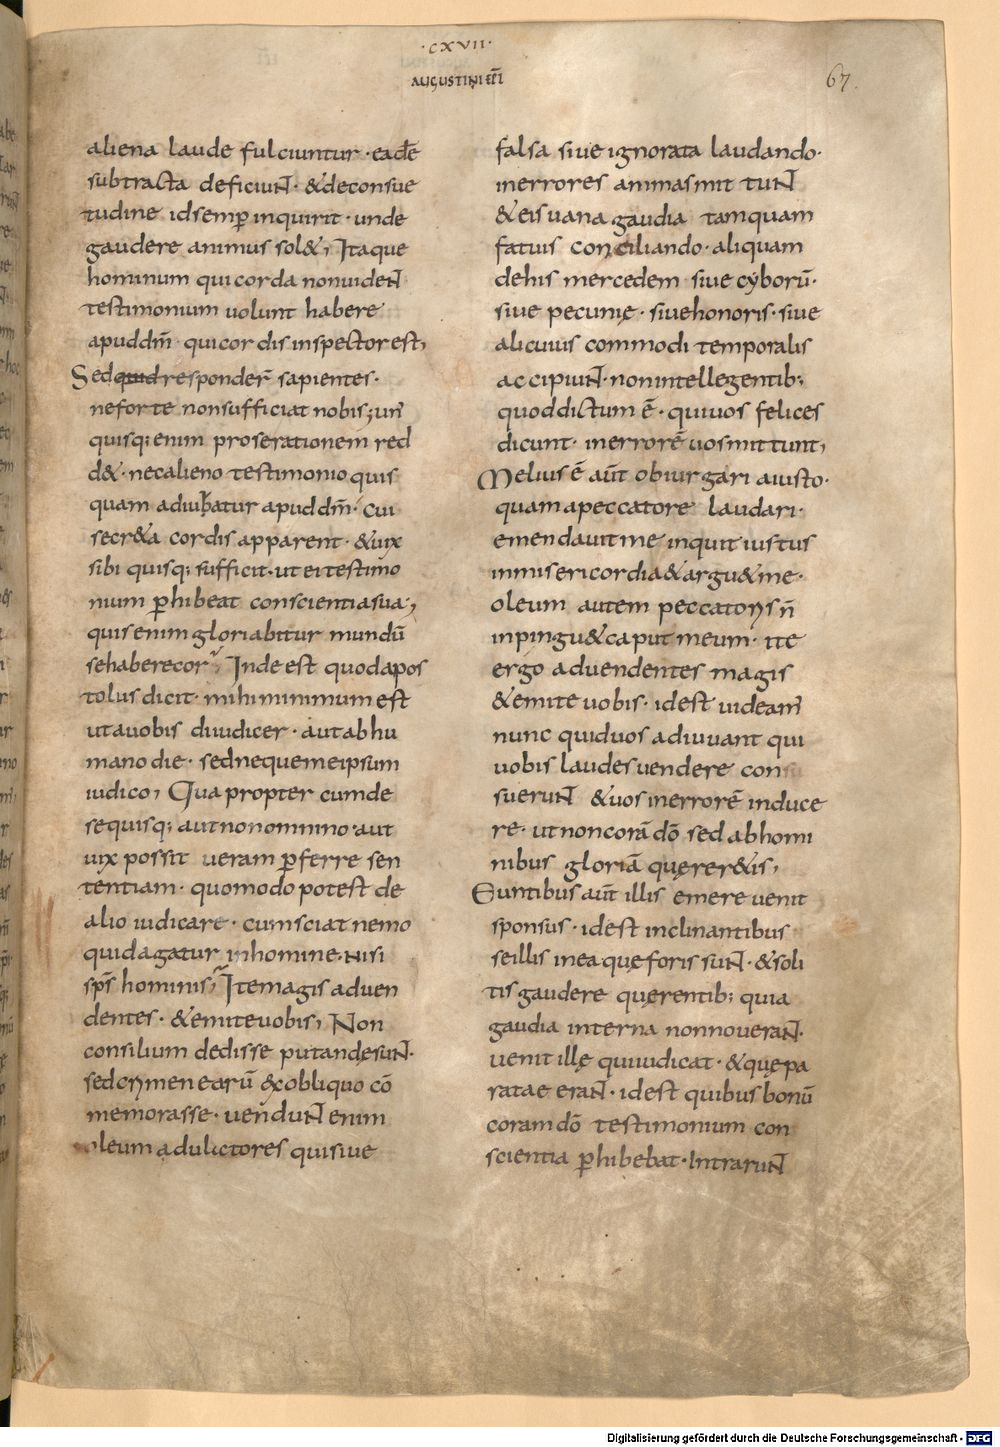 ·CXVII·
AUGUSTINI EP̄I
67.
aliena laude fulciuntur · eadē
subtracta deficiuNT · & deconsue
tudine id semꝑ inquirit · unde
gaudere animus sol&; Itaque
hominum qui corda non uideNT
testimonium uolunt habere
apud dm̄ · qui cordis inspector est;
Sed quid responder̄ sapientes ·
ne forte non sufficiat nobis; un̄
quisq; enim pro se rationem red
d& · nec alieno testimonio quis
quam adiubatur apud dm̄ · cui
secr&a cordis apparent · & uix
sibi quisq; sufficit · ut ei testimo
nium ꝑhibeat conscientia sua;
quis enim gloriabitur mundū
se habere cor; Inde est quod apos
tolus dicit · mihi minimum est
ut a uobis diiudicer · aut ab hu
mano die · sed neque me ipsum
iudico; Qua propter cum de
se quisq; aut non omnino · aut
uix possit ueram ꝑferre sen
tentiam · quomodo potest de
alio iudicare · cum sciat nemo
quid agatur in homine · nisi
sp̄s hominis; Ite magis ad uen
dentes · & emite uobis; Non
consilium dedisse putandę suNT ·
sed crymen earū ex obliquo cō
memorasse · uenduNT enim
oleum adulatores qui siue
falsa siue ignorata laudando ·
in errores animas mittuNT
& eis uana gaudia tamquam
fatuis conciliando · aliquam
de his mercedem siue cyborū ·
siue pecunię · siue honoris · siue
alicuius commodi temporalis
accipiuNT · non intellegentib;
quod dictum ē · qui uos felices
dicunt · in errorē uos mittunt;
Melius ē aūt obiurgari a iusto ·
quam a peccatore laudari ·
emendauit me inquit iustus
in misericordia & argu& me ·
oleum autem peccatorys n̄
inpingu& caput meum · ite
ergo ad uendentes magis
& emite uobis · id est uideam̄
nunc quid uos adiuuant qui
uobis laudes uendere consu
sueruNT & uos in errorē induce
re · ut non corā dō sed ab homi
nibus gloriā quęrer&is;
Euntibus aūt illis emere uenit
sponsus · id est inclinantibus
se illis in ea quę foris suNT · & soli
tis gaudere quęrentib; quia
gaudia interna non noueraNT ·
uenit illę qui iudicat · & quę pa
ratae eraNT · id est quibus bonū
coram dō testimonium con
scientia ꝑhibebat · IntraruNT
Digitalisierung gefördert durch die Deutsche Forschungsgemeinschaft - DFG